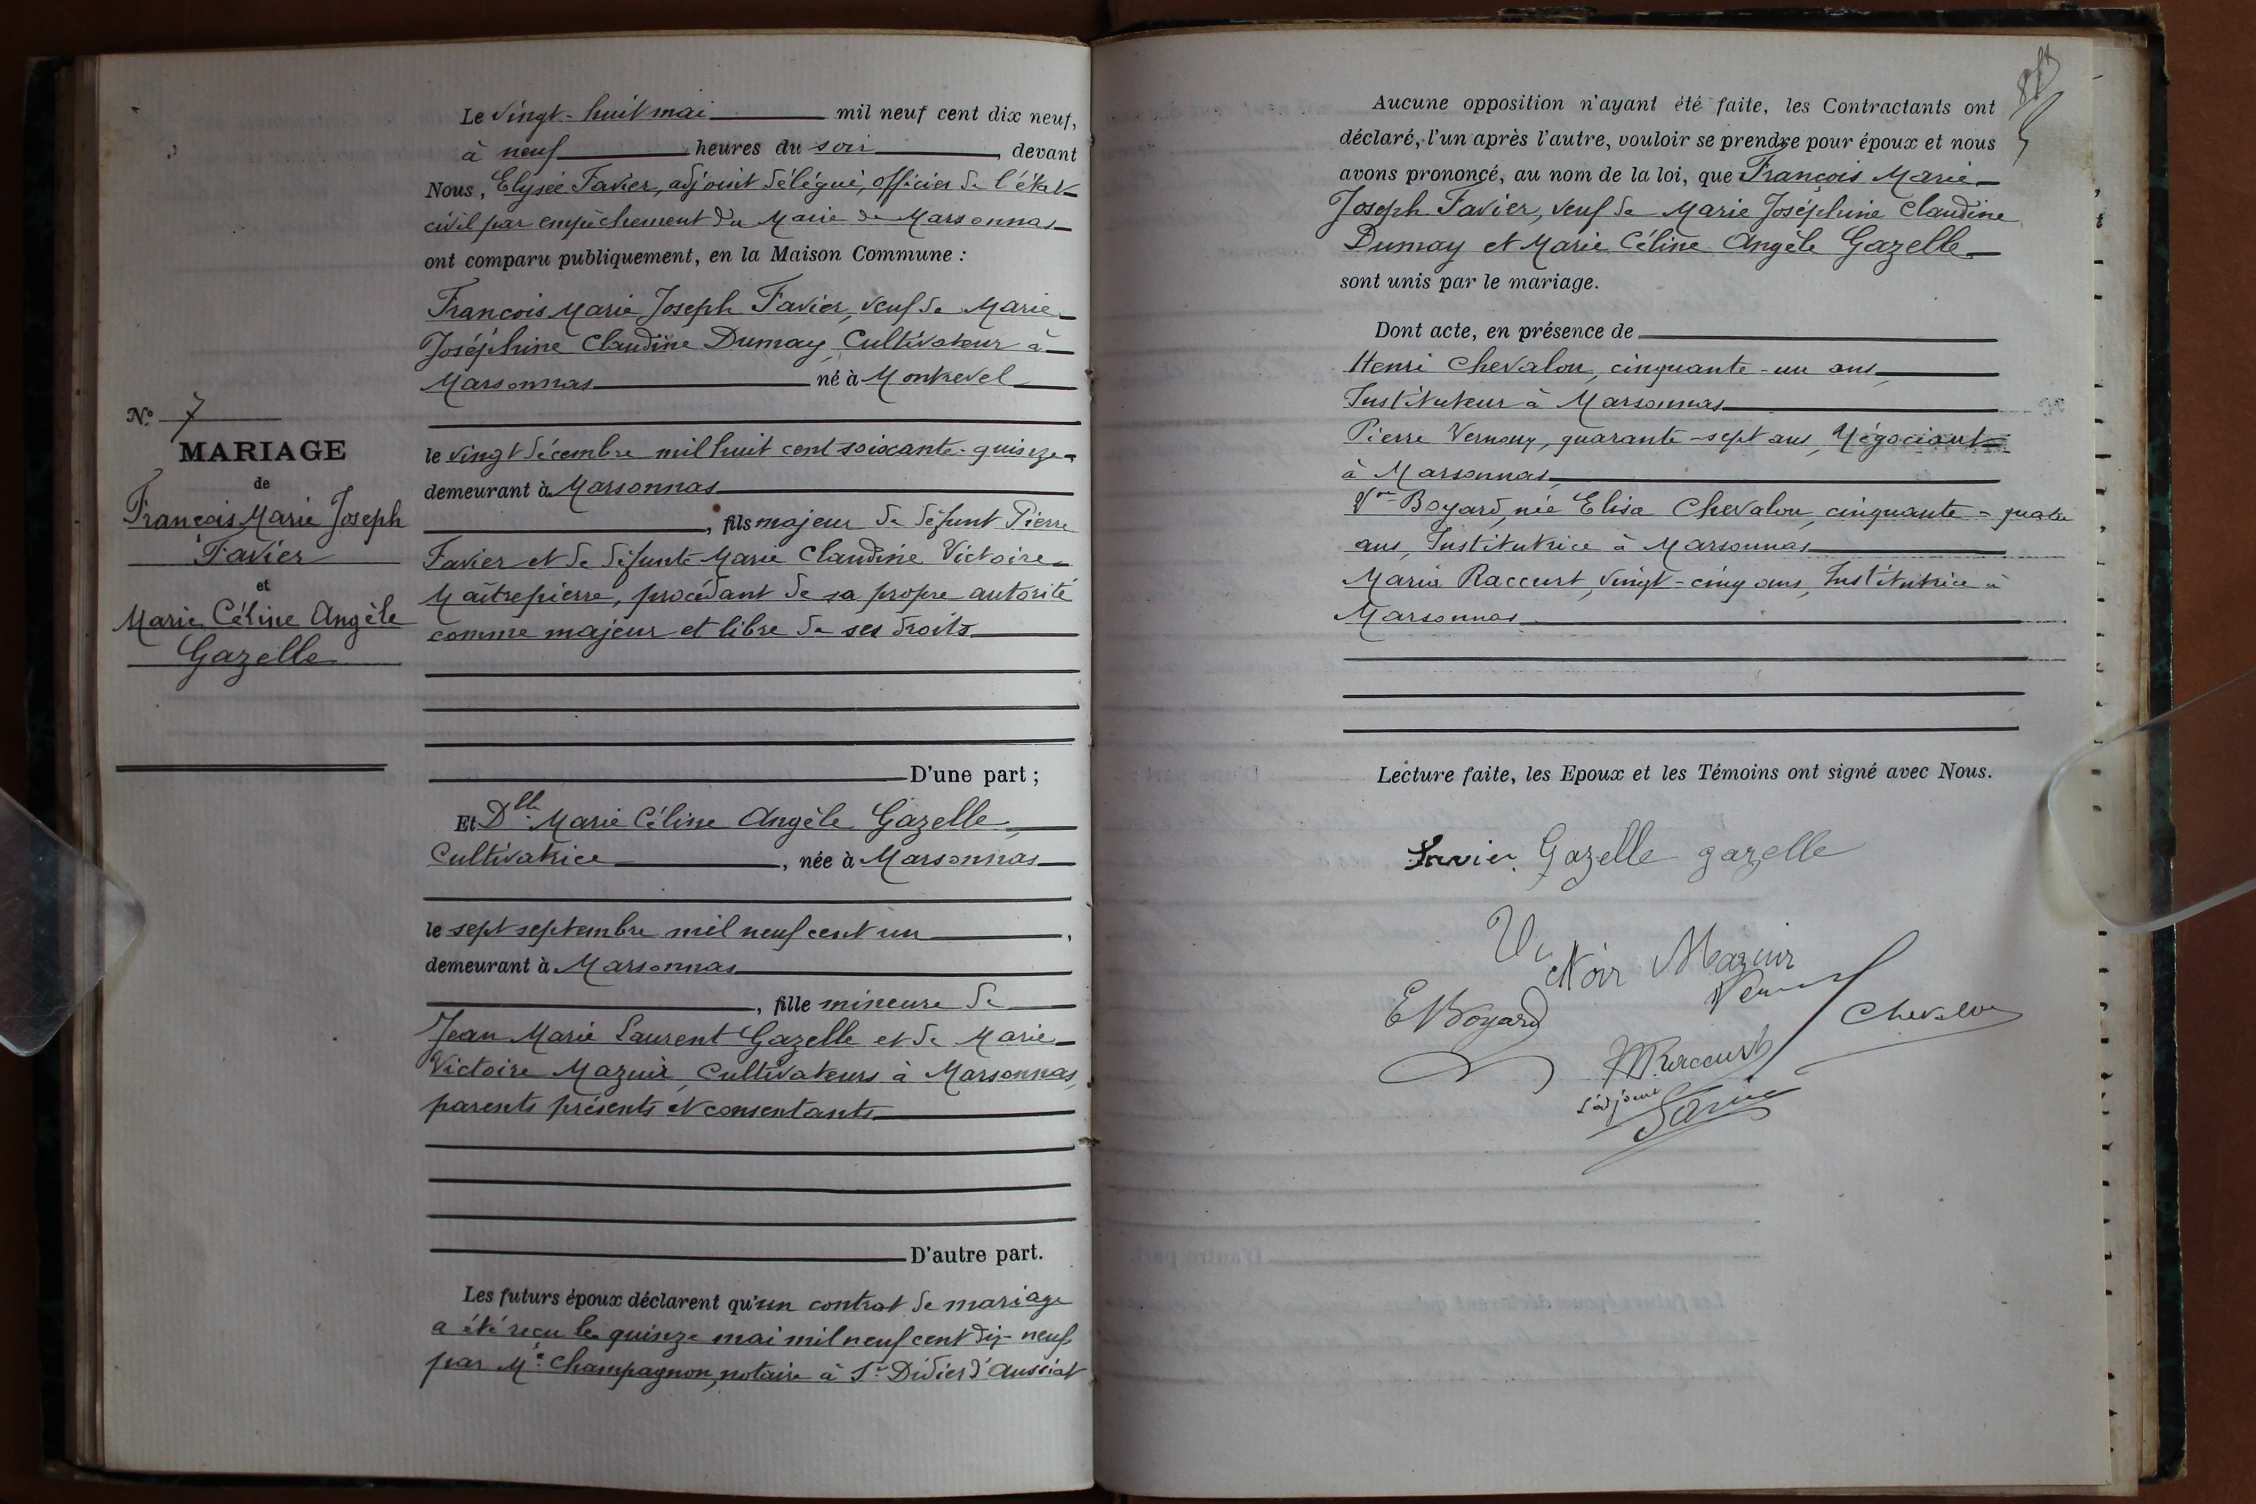 Le vingt-huit mai mil neuf cent dix neuf,
à neuf heures du soir, devant
Nous, Elysée Favier, adjoint délégué, officier de l'état
civil par empêchement du Maire de Marsonnas
ont comparu publiquement, en la Maison Commune :
François Marie Joseph Favier, veuf de Marie
Joséphine Claudine Dumay, Cultivateur à
Marsonnas né à Montrevel
le vingt décembre mil huit cent soixante-quinze
demeurant à Marsonnas
, fils majeur de défunt Pierre
Favier et de défunte Marie Claudine Victoire
Maîtrepierre, procédant de sa propre autorité
comme majeur et libre de ses droits
D'une part ;
Et Dlle Marie Céline Angèle Gazelle,
Cultivatrice, née à Marsonnas
le sept septembre mil neuf cent un,
demeurant à Marsonnas
, fille mineure de
Jean Marie Laurent Gazelle et de Marie
Victoire Mazuir, Cultivateurs à Marsonnas,
parents présents et consentants
D'autre part.
Les futurs époux déclarent qu'un contrat de mariage
a été reçu le quinze mai mil neuf cent dix-neuf
par Me Champagnon, notaire à St Didier d'Aussiat
N° 7
MARIAGE
de
François Marie Joseph
Favier
et
Marie Céline Angèle
Gazelle
Aucune opposition n'ayant été faite, les Contractants ont
déclaré, l'un après l'autre, vouloir se prendre pour époux et nous
avons prononcé, au nom de la loi, que François Marie
Joseph Favier, veuf de Marie Joséphine Claudine
Dumay et Marie Céline Angèle Gazelle
sont unis par le mariage.
Dont acte, en présence de
Henri Chevalon, cinquante-un ans,
Instituteur à Marsonnas
Pierre Vernoux, quarante-sept ans, Négociant
à Marsonnas,
Vve Boyard, née Elisa Chevalon, cinquante-quatre
ans, Institutrice à Marsonnas
Maria Raccurt, vingt-cinq ans, Institutrice à
Marsonnas
Lecture faite, les Epoux et les Témoins ont signé avec Nous.
Favier Gazelle gazelle
Noir Mazuir
E Boyard
Chevalon
M Raccurt
L'adjoint
Favier